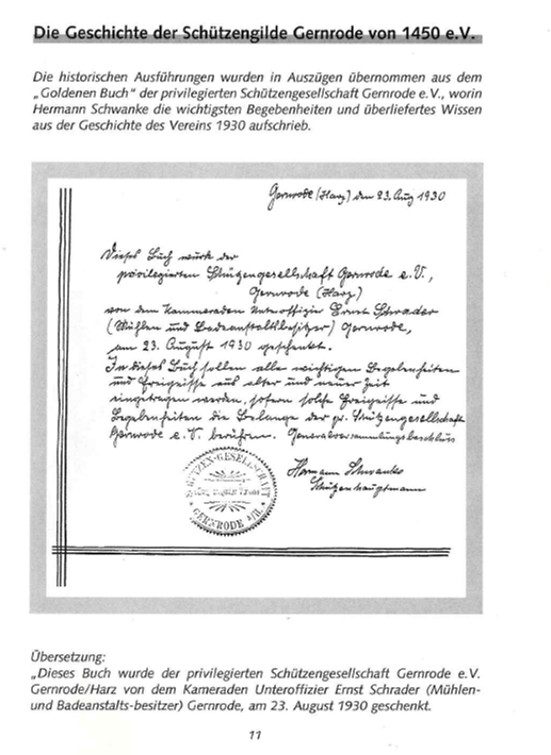 Die Geschichte der Schützengilde Gernrode von 1450 e.V.
Die historischen Ausführungen wurden in Auszügen übernommen aus dem
„Goldenen Buch“ der privilegierten Schützengesellschaft Gernrode e.V., worin
Hermann Schwanke die wichtigsten Begebenheiten und überliefertes Wissen
aus der Geschichte des Vereins 1930 aufschrieb.
Gernrode (Harz) den 23. Aug 1930
Dieses Buch wurde der
privilegierten Schützengesellschaft Gernrode e.V.,
Gernrode (Harz)
von dem Kameraden Unteroffizier Ernst Schrader
(Mühlen und Badeanstaltsbesitzer) Gernrode,
am 23. August 1930 geschenkt.
In dieses Buch sollen alle wichtigen Begebenheiten
und Ereignisse aus alter und neuer Zeit
eingetragen werden, sofern solche Ereignisse und
Begebenheiten die Belange der pr. Schützengesellschaft
Gernrode e.V. berühren. Generalversammlungsbeschluss
Hermann Schwanke
Schützenhauptmann
SCHÜTZEN-GESELLSCHAFT
GERNRODE a/H.
Übersetzung:
„Dieses Buch wurde der privilegierten Schützengesellschaft Gernrode e.V.
Gernrode/Harz von dem Kameraden Unteroffizier Ernst Schrader (Mühlen-
und Badeanstalts-besitzer) Gernrode, am 23. August 1930 geschenkt.
11